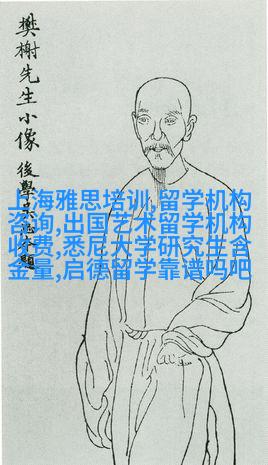 樊榭先生小像
後學吳題
上海雅思培训,留学机构
咨询,出国艺术留学机构
收费,悉尼大学研究生含
金量,启德留学靠谱吗吧